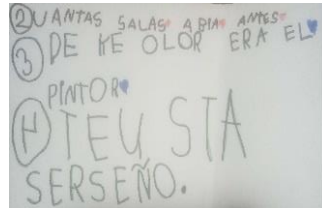 ② UANTAS SALAS ABIA ANTES
③ DE KE OLOR ERA EL
PINTOR
④ TEU STA
SERSEÑO.